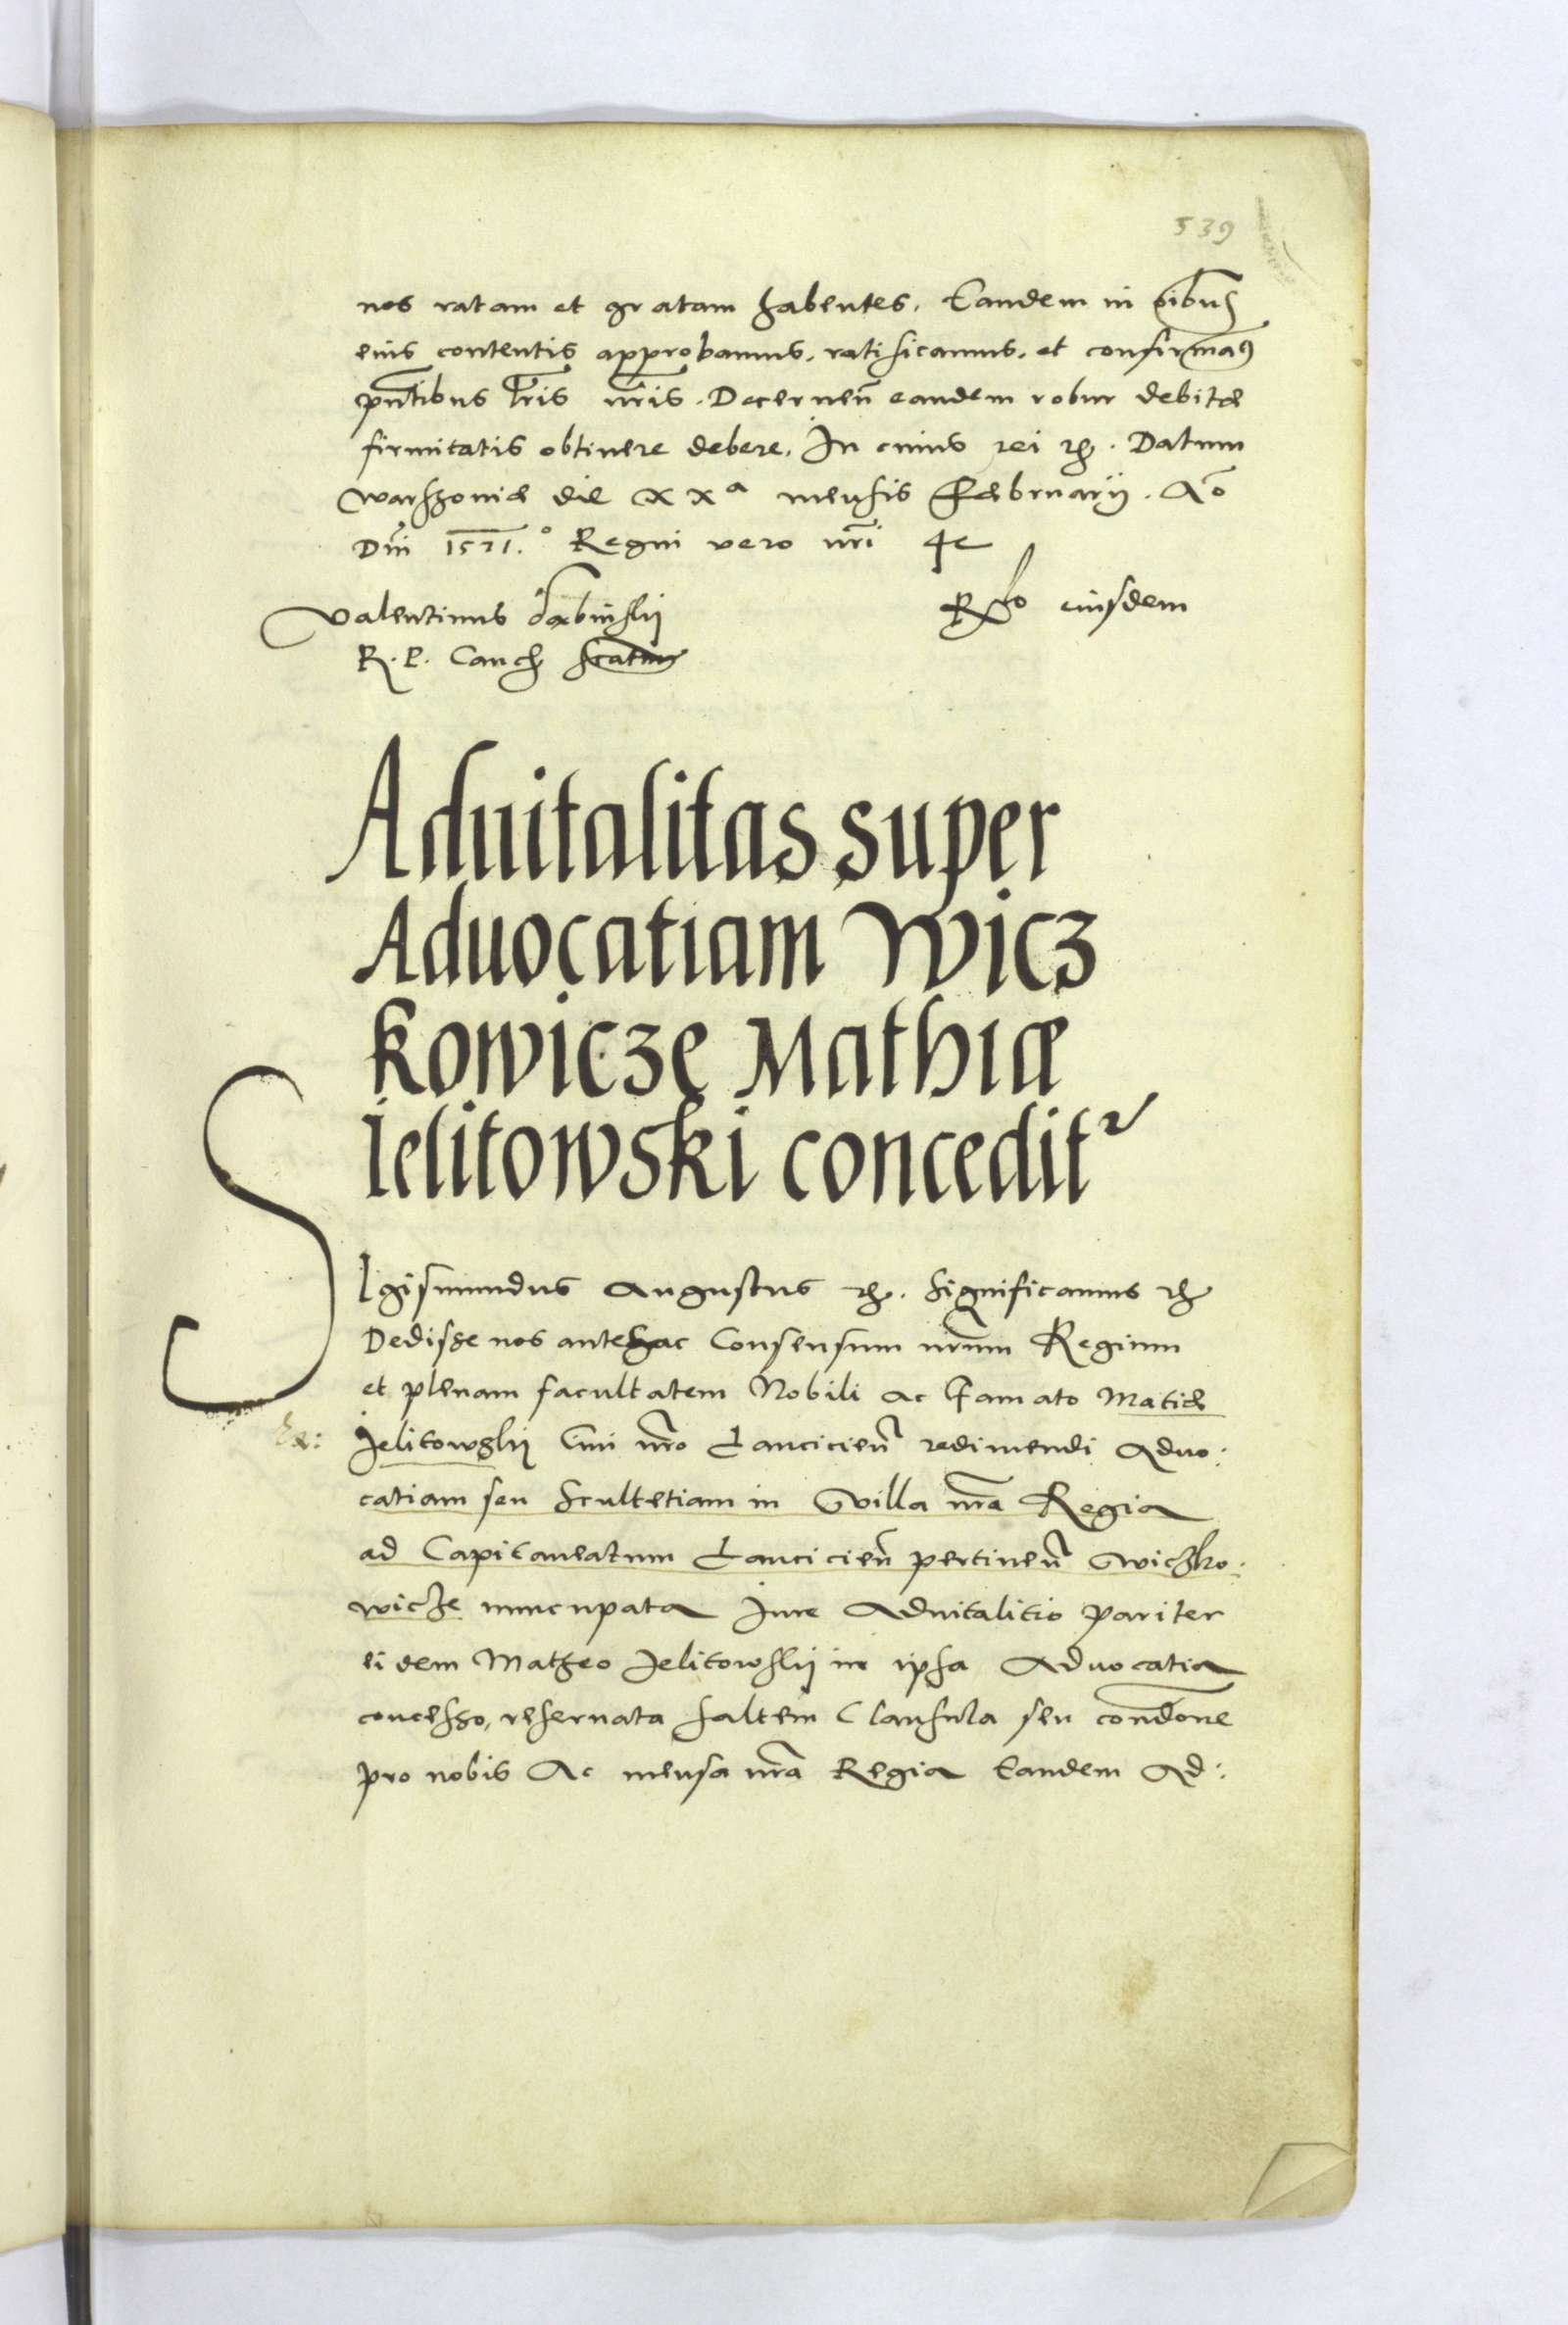 539
nos ratam et gratam habentes. Eandem in oıbus
eius contentis approbamus, ratificamus, et confirmaꝰ
pn̄tibus lr̄is nr̄is. Decernen̄ eandem robur debitæ
firmitatis obtinere debere. In cuius rei rz. Datum
Warszoviæ die XXª mensis Februarij. Aō
Dn̄i 1571.° Regni vero nr̄i 42
Valentinus Dæbinskij
R. P. Canch̄ sc̄atus
R̄o eiusdem
Advitalitas super
Aduocatiam Wicz
kowicze Mathiæ
Ielitowski conceditr
SIgismundus Augustus rz. Significamus rz
Dedisse nos antehac Consensum nr̄um Regium
et plenam facultatem Nobili ac Famato Matiæ
Jelitowskij Civi nr̄o Lancicien̄ redimendi Aduo:
catiam seu Scultetiam in Villa nr̄a Regia
ad Capitaneatum Lancicien̄ pertinen̄ Wiczko:
wicze nuncupata Jure Advitalitio pariter
eidem Matheo Jelitowskij in ipsa Advocatia
concesso, reseruata saltem Clausula seu con̄done
pro nobis Ac mensa nr̄a Regia Eandem Ad: